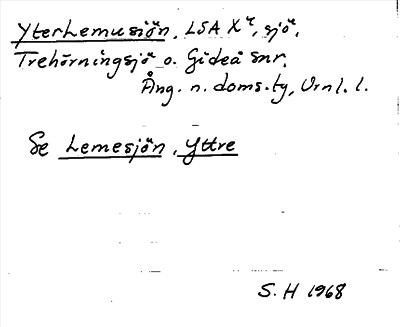 Ytterlemusjön, LSA X4, sjö,
Trehörningsjö o. Gideå snr.
Ång. n. doms.tg, Vrnl. l.
Se Lemesjön, Yttre
S. H 1968